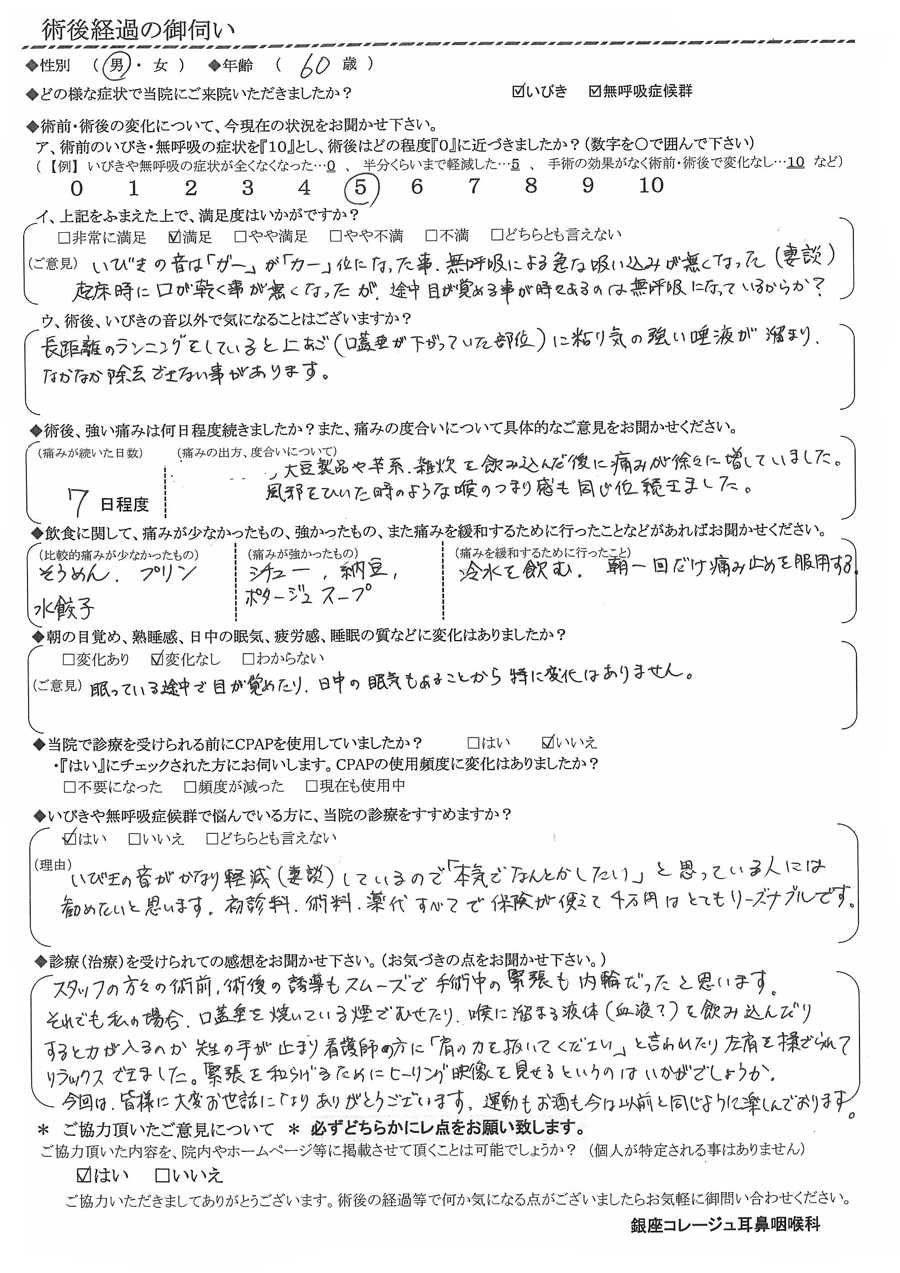 術後経過の御伺い
◆性別 （ 男 ・ 女 ） ◆年齢 （ 60 歳 ）
◆どの様な症状で当院にご来院いただきましたか？ ☑いびき ☑無呼吸症候群
◆術前・術後の変化について、今現在の状況をお聞かせ下さい。
ア、術前のいびき・無呼吸の症状を『10』とし、術後はどの程度『0』に近づきましたか？(数字を○で囲んで下さい)
（【例】 いびきや無呼吸の症状が全くなくなった…0 、 半分くらいまで軽減した…5 、 手術の効果がなく術前・術後で変化なし…10 など）
0 1 2 3 4 5 6 7 8 9 10
イ、上記をふまえた上で、満足度はいかがですか？
□非常に満足 ☑満足 □やや満足 □やや不満 □不満 □どちらとも言えない
(ご意見) いびきの音は「ガー」が「カー」位になった事、無呼吸による急な吸い込みが無くなった(妻談)
起床時に口が乾く事が無くなったが、途中目が覚める事が時々あるのは無呼吸になっているからか？
ウ、術後、いびきの音以外で気になることはございますか？
長距離のランニングをしていると上あご(口蓋垂が下がっていた部位)に粘り気の強い唾液が溜まり、
なかなか除去できない事があります。
◆術後、強い痛みは何日程度続きましたか？また、痛みの度合いについて具体的なご意見をお聞かせください。
(痛みが続いた日数) (痛みの出方、度合いについて)
、大豆製品や芋系、雑炊を飲み込んだ後に痛みが徐々に増していました。
7 日程度 風邪をひいた時のような喉のつまり感も同じ位続きました。
◆飲食に関して、痛みが少なかったもの、強かったもの、また痛みを緩和するために行ったことなどがあればお聞かせください。
(比較的痛みが少なかったもの) (痛みが強かったもの) (痛みを緩和するために行ったこと)
そうめん、プリン シチュー、納豆、 冷水を飲む、朝一回だけ痛み止めを服用する。
水餃子 ポタージュスープ
◆朝の目覚め、熟睡感、日中の眠気、疲労感、睡眠の質などに変化はありましたか？
□変化あり ☑変化なし □わからない
(ご意見) 眠っている途中で目が覚めたり、日中の眠気もあることから特に変化はありません。
◆当院で診療を受けられる前にCPAPを使用していましたか？ □はい ☑いいえ
・『はい』にチェックされた方にお伺いします。CPAPの使用頻度に変化はありましたか？
□不要になった □頻度が減った □現在も使用中
◆いびきや無呼吸症候群で悩んでいる方に、当院の診療をすすめますか？
☑はい □いいえ □どちらとも言えない
(理由) いびきの音がかなり軽減(妻談)しているので「本気でなんとかしたい」と思っている人には
勧めたいと思います。初診料、術料、薬代すべてで保険が使えて4万円はとてもリーズナブルです。
◆診療(治療)を受けられての感想をお聞かせ下さい。(お気づきの点をお聞かせ下さい。)
スタッフの方々の術前、術後の誘導もスムーズで手術中の緊張も内輪だったと思います。
それでも私の場合、口蓋垂を焼いている煙でむせたり、喉に溜まる液体(血液？)を飲み込んだり
すると力が入るのか先生の手が止まり看護師の方に「肩の力を抜いてください」と言われたり左肩を揉ざられて
リラックスできました。緊張を和らげるためにヒーリング映像を見せるというのはいかがでしょうか。
今回は、皆様に大変お世話になりありがとうございます。運動もお酒も今は以前と同じように楽しんでおります。
＊ ご協力頂いたご意見について ＊ 必ずどちらかにレ点をお願い致します。
ご協力頂いた内容を、院内やホームページ等に掲載させて頂くことは可能でしょうか？ (個人が特定される事はありません)
☑はい □いいえ
ご協力いただきましてありがとうございます。術後の経過等で何か気になる点がございましたらお気軽に御問い合わせください。
銀座コレージュ耳鼻咽喉科